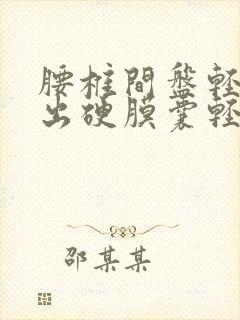 腰椎間盤輕
出硬膜囊輕
邵某某